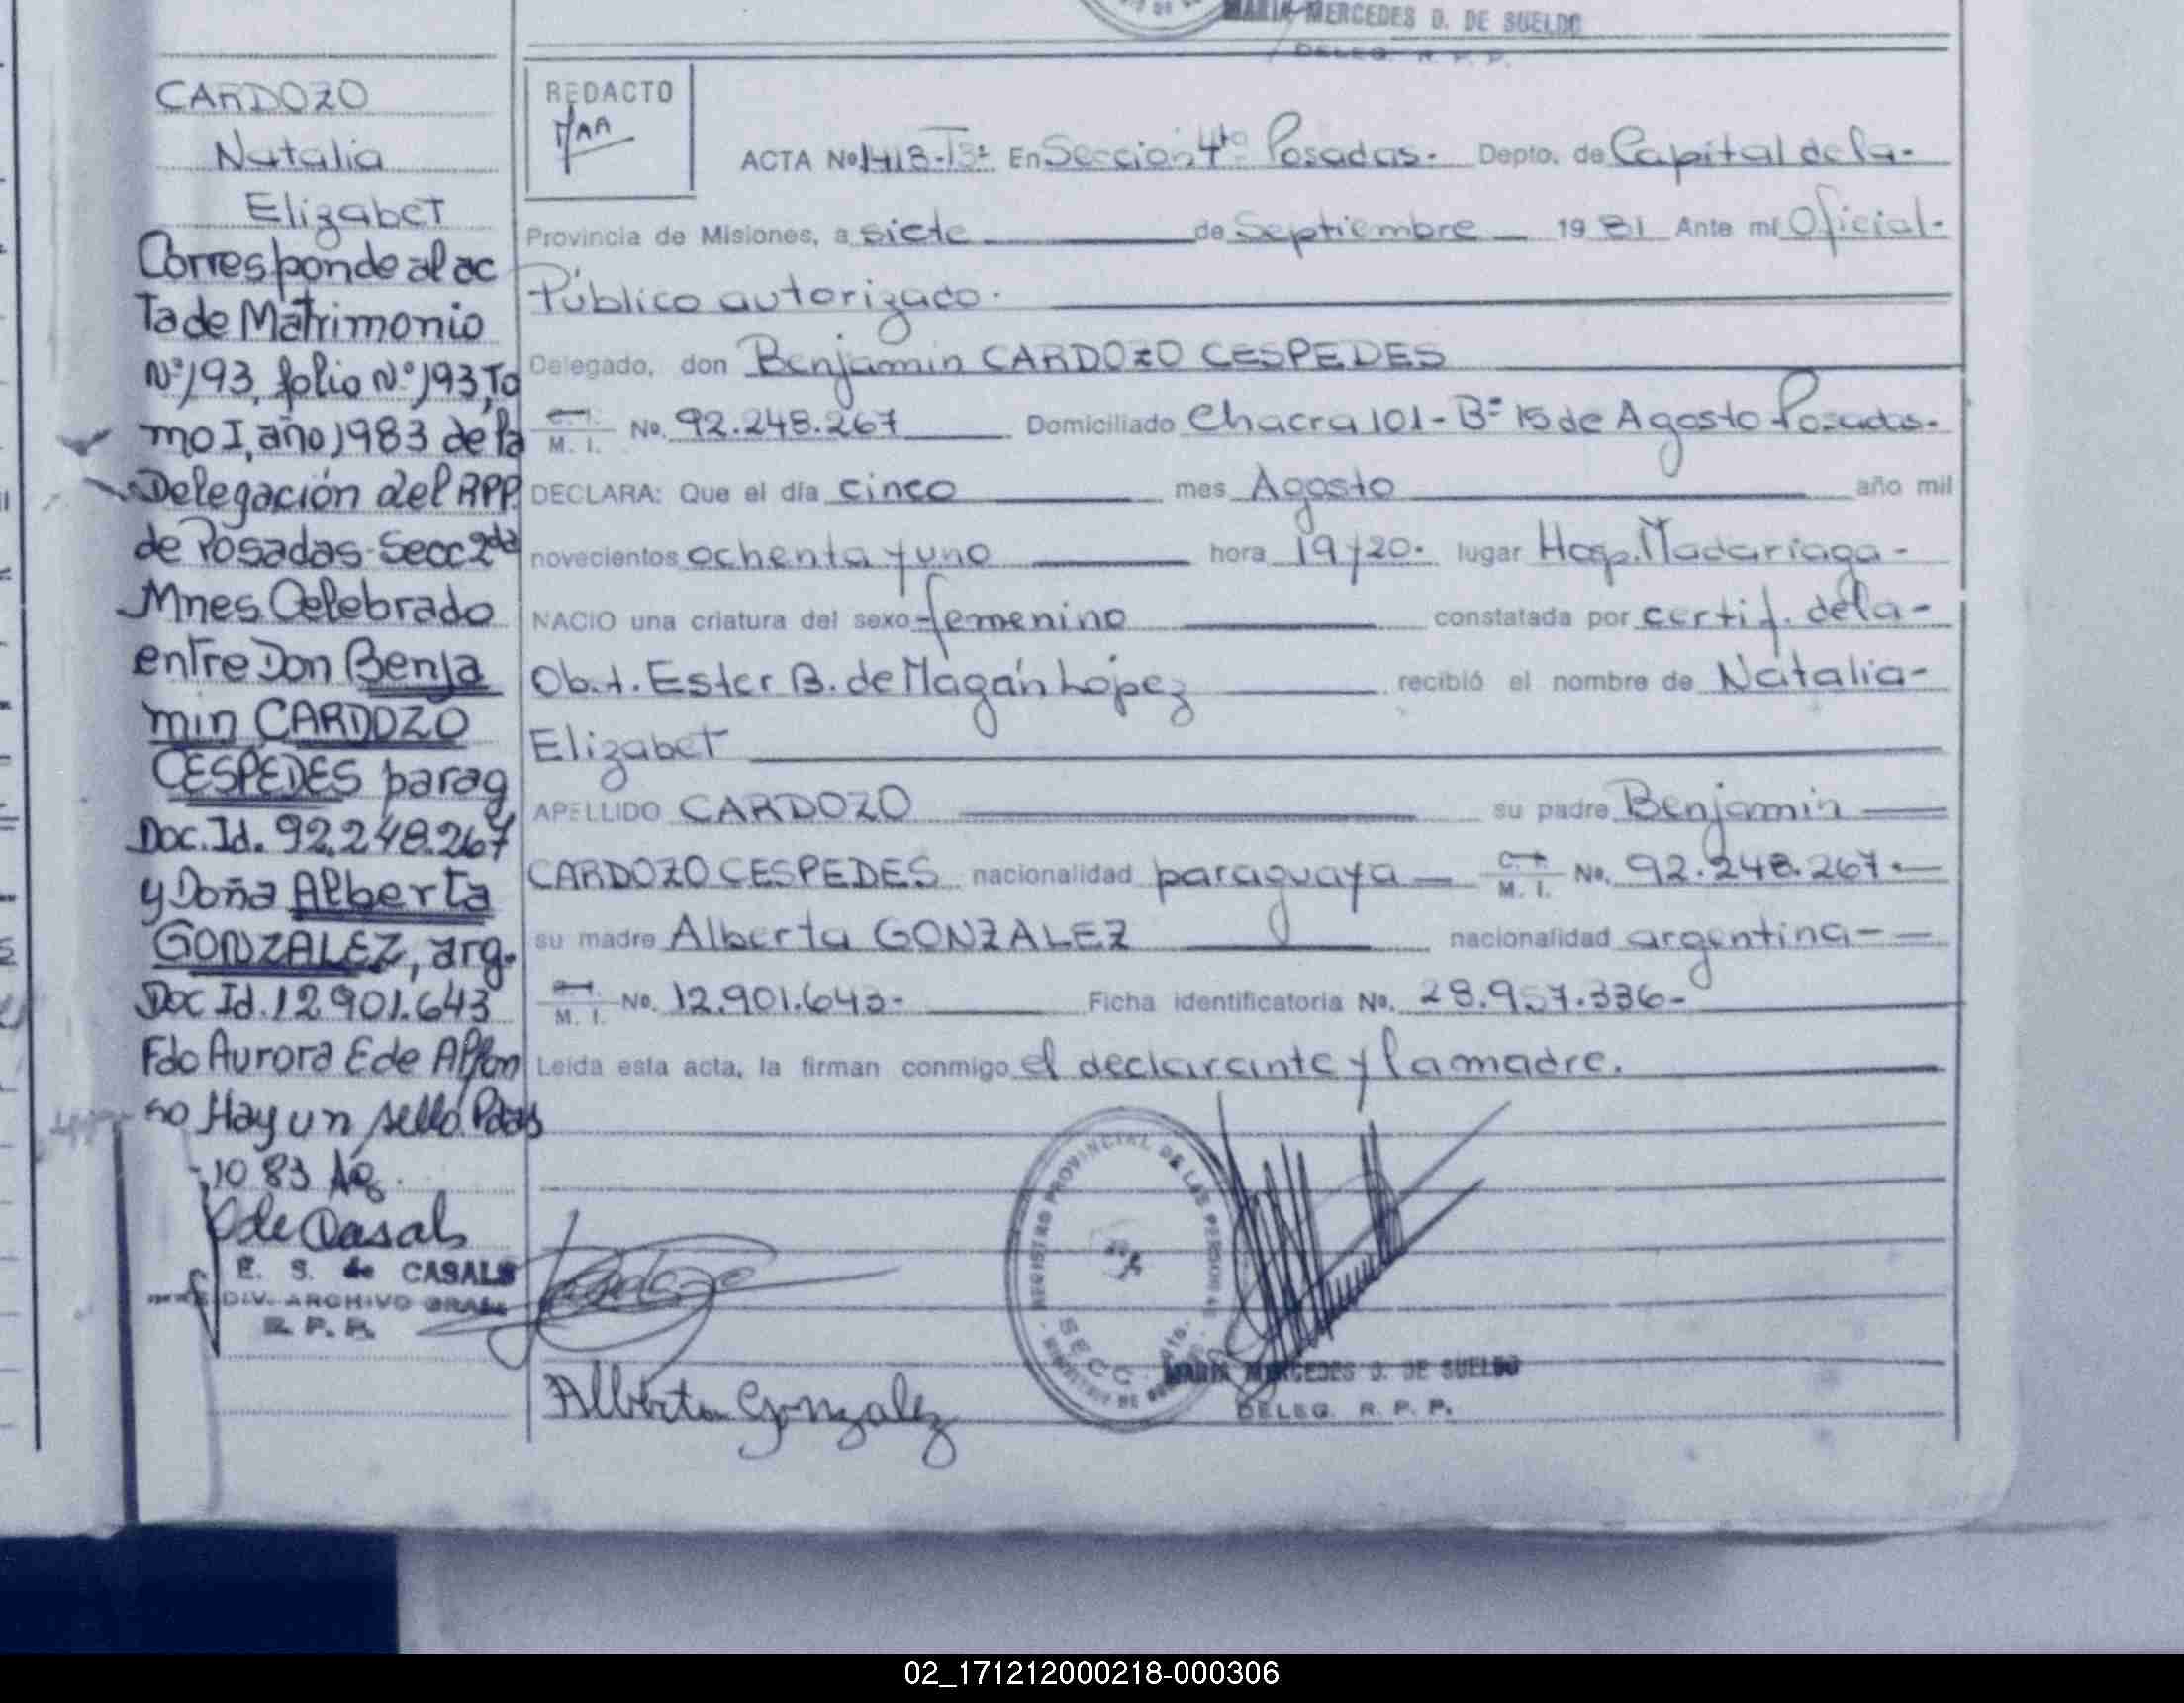 MARIA MERCEDES D. DE SUELDO
DELEG. R. P. P.
CARDOZO
Natalia
Elizabet
Corresponde al ac
ta de Matrimonio
Nº 193, folio Nº 193, To
mo I, año 1983 de la
Delegación del RPP.
de Posadas-Secc 2da
Mnes. Celebrado
entre Don Benja
min CARDOZO
CESPEDES parag
Doc. Id. 92.248.267
y Doña Alberta
GONZALEZ, arg.
Doc Id. 12 901.643
Fdo Aurora E de Alfon
so Hay un sello. Pdas
10 83
de Casals
E. S. de CASALS
DIV. ARCHIVO GRAL
R. P. P.
REDACTO
ACTA Nº 1418-Tº En Sección 4ta Posadas. Depto. de Capital de la.
Provincia de Misiones, a siete de Septiembre 1981 Ante mí Oficial.
Público autorizado.
Delegado, don Benjamin CARDOZO CESPEDES
C. I.
M. I. No. 92.248.267 Domiciliado Chacra 101 - Bº 15 de Agosto Posadas.
DECLARA: Que el día cinco mes Agosto año mil
novecientos ochenta y uno hora 19y20. lugar Hosp. Madariaga -
NACIO una criatura del sexo femenino constatada por certif. de la -
Obst. Ester B. de Magán López recibió el nombre de Natalia -
Elizabet
APELLIDO CARDOZO su padre Benjamin
CARDOZO CESPEDES nacionalidad paraguaya C. I.
M. I. No. 92.248.267.
su madre Alberta GONZALEZ nacionalidad argentina -
C. I.
M. I. No. 12.901.643- Ficha identificatoria No. 28.957.336-
Leída esta acta, la firman conmigo el declarante y la madre.
REGISTRO PROVINCIAL DE LAS PERSONAS
SECC. 4ta.
Cardozo
Alberta Gonzalez
MARIA MERCEDES D. DE SUELDO
DELEG. R. P. P.
02_171212000218-000306